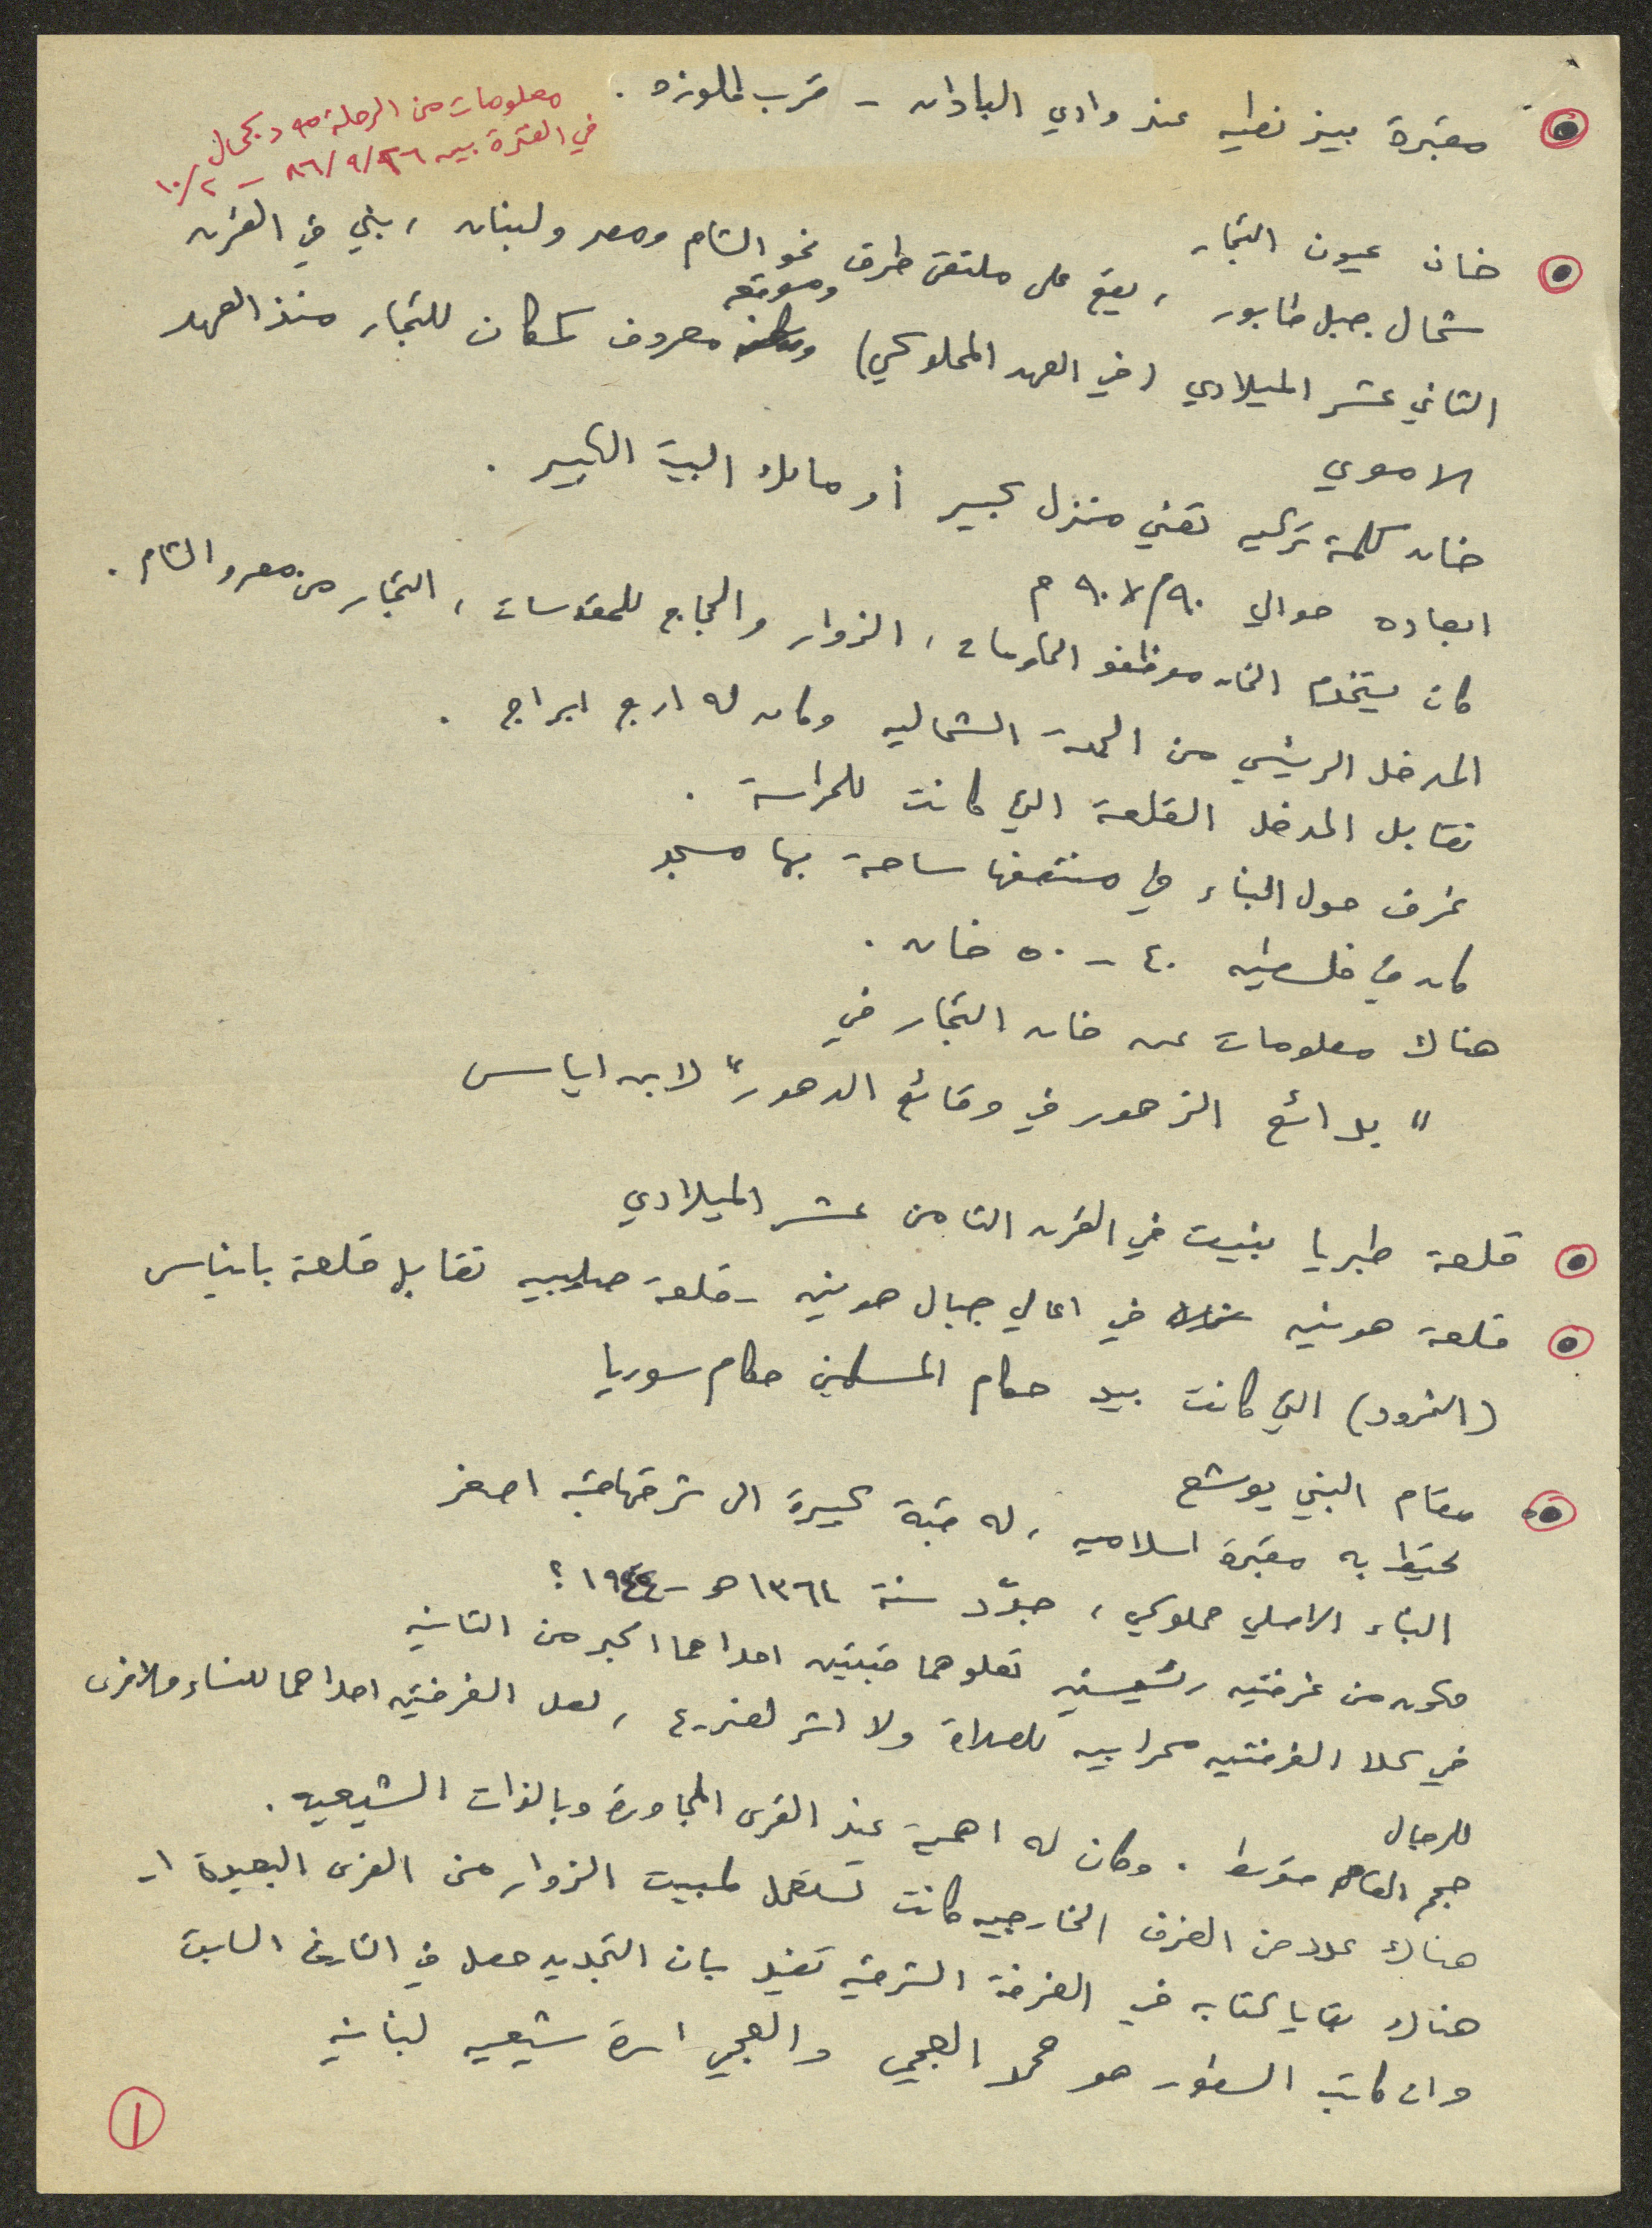 معلومات من الرحلة مع د. كمال
في الفترة بين ٢٦/٩/٨٦ - ١٠/٢
مقبرة بيزنطيه عند وادي البادان - قرب طلوزه .
خان عيون التجار
شمال جبل طابور ، يقع على ملتقى طرق نحو الشام ومصر ولبنان ، بني في القرن
الثاني عشر الميلادي (في العهد المملوكي) وموقعه معروف كمكان للتجار منذ العهد
الاموي
خان كلمة تركيه تعني منزل كبير أو مالك البيت الكبير .
ابعاده حوالي ٩٠م/٩٠ م
كان يستخدم الخان موظفو الحكومات ، الزوار والحجاج للمقدسات ، التجار من مصر والشام .
المدخل الرئيسي من الجهة الشماليه وكان له اربع ابراج .
تقابل المدخل القلعة التي كانت للحراسة .
غرف حول البناء في منتصفها ساحة بها مسجد
كان في فلسطين ٤٠ - ٥٠ خان .
هناك معلومات عن خان التجار في
" بدائع الزهور في وقائع الدهور" لابن اياس
قلعة طبريا بنيت في القرن الثامن عشر الميلادي
قلعة هونين في اعالي جبال هونين - قلعة صليبيه تقابل قلعة بانياس
(النمرود) التي كانت بيد حكام المسلمين حكام سوريا
مقام النبي يوشع
تحيط به مقبرة اسلاميه ، له قبة كبيرة الى شرقها قبة اصغر
البناء الاصلي مملوكي ، جدّد سنة ١٣٦١ هـ - ١٩٤٤ ؟
مكون من غرفتين رئيسيتين تعلوهما قبتين احداهما اكبر من الثانيه
في كلا الغرفتين محرابين للصلاة ولا اثر لضريح ، لعل الغرفتين احداهما للنساء والاخرى
للرجال
حجم المقام متوسط . وكان له اهمية عند القرى المجاورة وبالذات الشيعيه .
هناك عدد من الغرف الخارجيه كانت تستعمل لمبيت الزوار من القرى البعيدة
هناك بقايا كتابه في الغرفة الشرقيه تفيد بان التجديد حصل في التاريخ السابق
وان كاتب السطور هو محمد العجمي والعجمي اسرة شيعيه لبنانيه
١